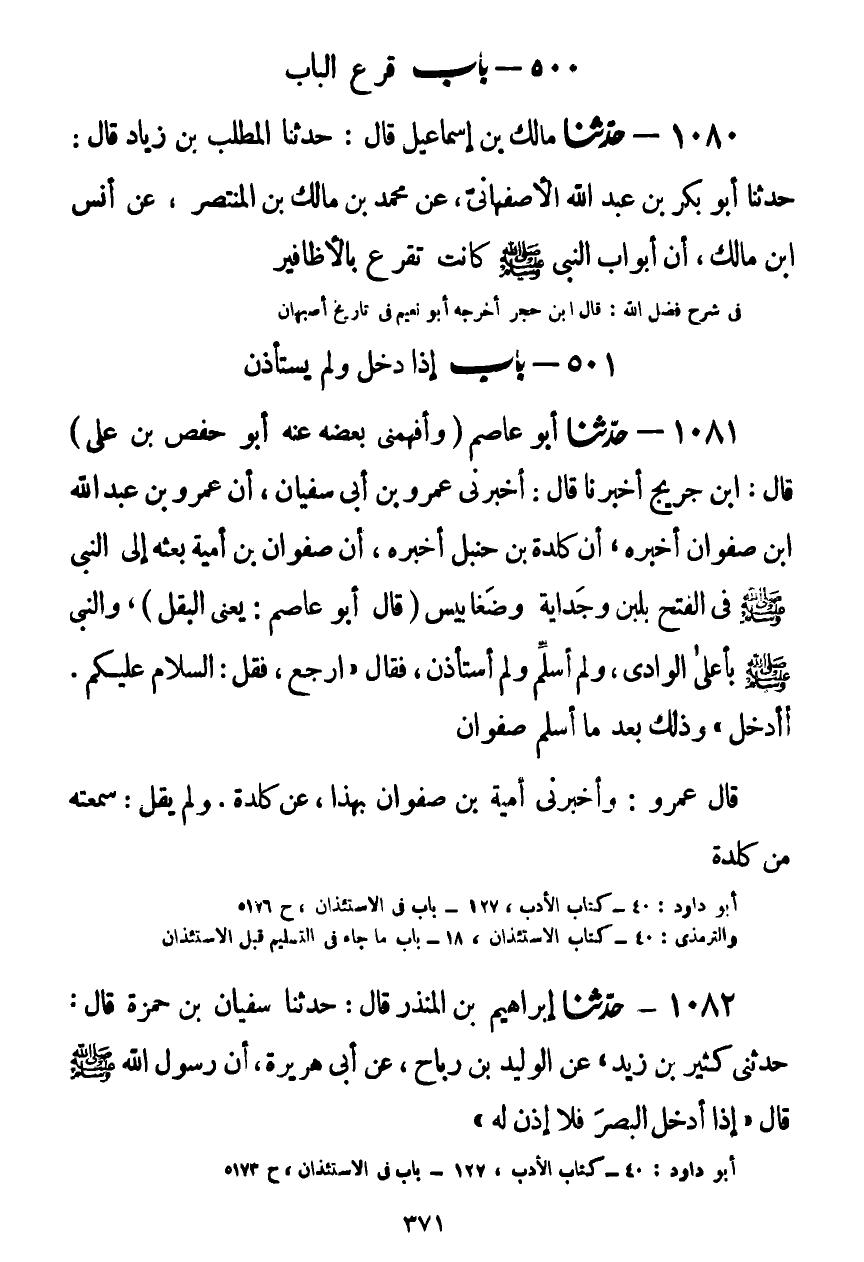 ٥٠٠ – باب قرع الباب
١٠٨٠ – حدّثنا مالك بن إسماعيل قال : حدثنا المطلب بن زياد قال :
حدثنا أبو بكر بن عبد الله الأصفهانىّ ، عن محمد بن مالك بن المنتصر ، عن أنس
ابن مالك ، أن أبواب النبى ﷺ كانت تقرع بالأظافير
فى شرح فضل الله : قال ابن حجر أخرجه أبو نعيم فى تاريخ أصبهان
٥٠١ – باب إذا دخل ولم يستأذن
١٠٨١ – حدّثنا أبو عاصم ( وأفهمنى بعضه عنه أبو حفص بن على )
قال : ابن جريج أخبرنا قال : أخبرنى عمرو بن أبى سفيان ، أن عمرو بن عبد الله
ابن صفوان أخبره ، أن كلدة بن حنبل أخبره ، أن صفوان بن أمية بعثه إلى النبى
ﷺ فى الفتح بلبن وجَداية وضَغابيس ( قال أبو عاصم : يعنى البقل ) ، والنبى
ﷺ بأعلىٰ الوادى ، ولم أسلِّم ولم أستأذن ، فقال « ارجع ، فقل : السلام عليكم .
أأدخل » وذلك بعد ما أسلم صفوان
قال عمرو : وأخبرنى أمية بن صفوان بهذا ، عن كلدة . ولم يقل : سمعته
من كلدة
أبو داود : ٤٠ – كتاب الأدب ، ١٢٧ – باب فى الاستئذان ، ح ٥١٧٦
والترمذى : ٤٠ – كتاب الاستئذان ، ١٨ – باب ما جاء فى التسليم قبل الاستئذان
١٠٨٢ – حدّثنا إبراهيم بن المنذر قال : حدثنا سفيان بن حمزة قال :
حدثنى كثير بن زيد ، عن الوليد بن رباح ، عن أبى هريرة ، أن رسول الله ﷺ
قال « إذا أدخل البصرَ فلا إذن له »
أبو داود : ٤٠ – كتاب الأدب ، ١٢٧ – باب فى الاستئذان ، ح ٥١٧٣
٣٧١